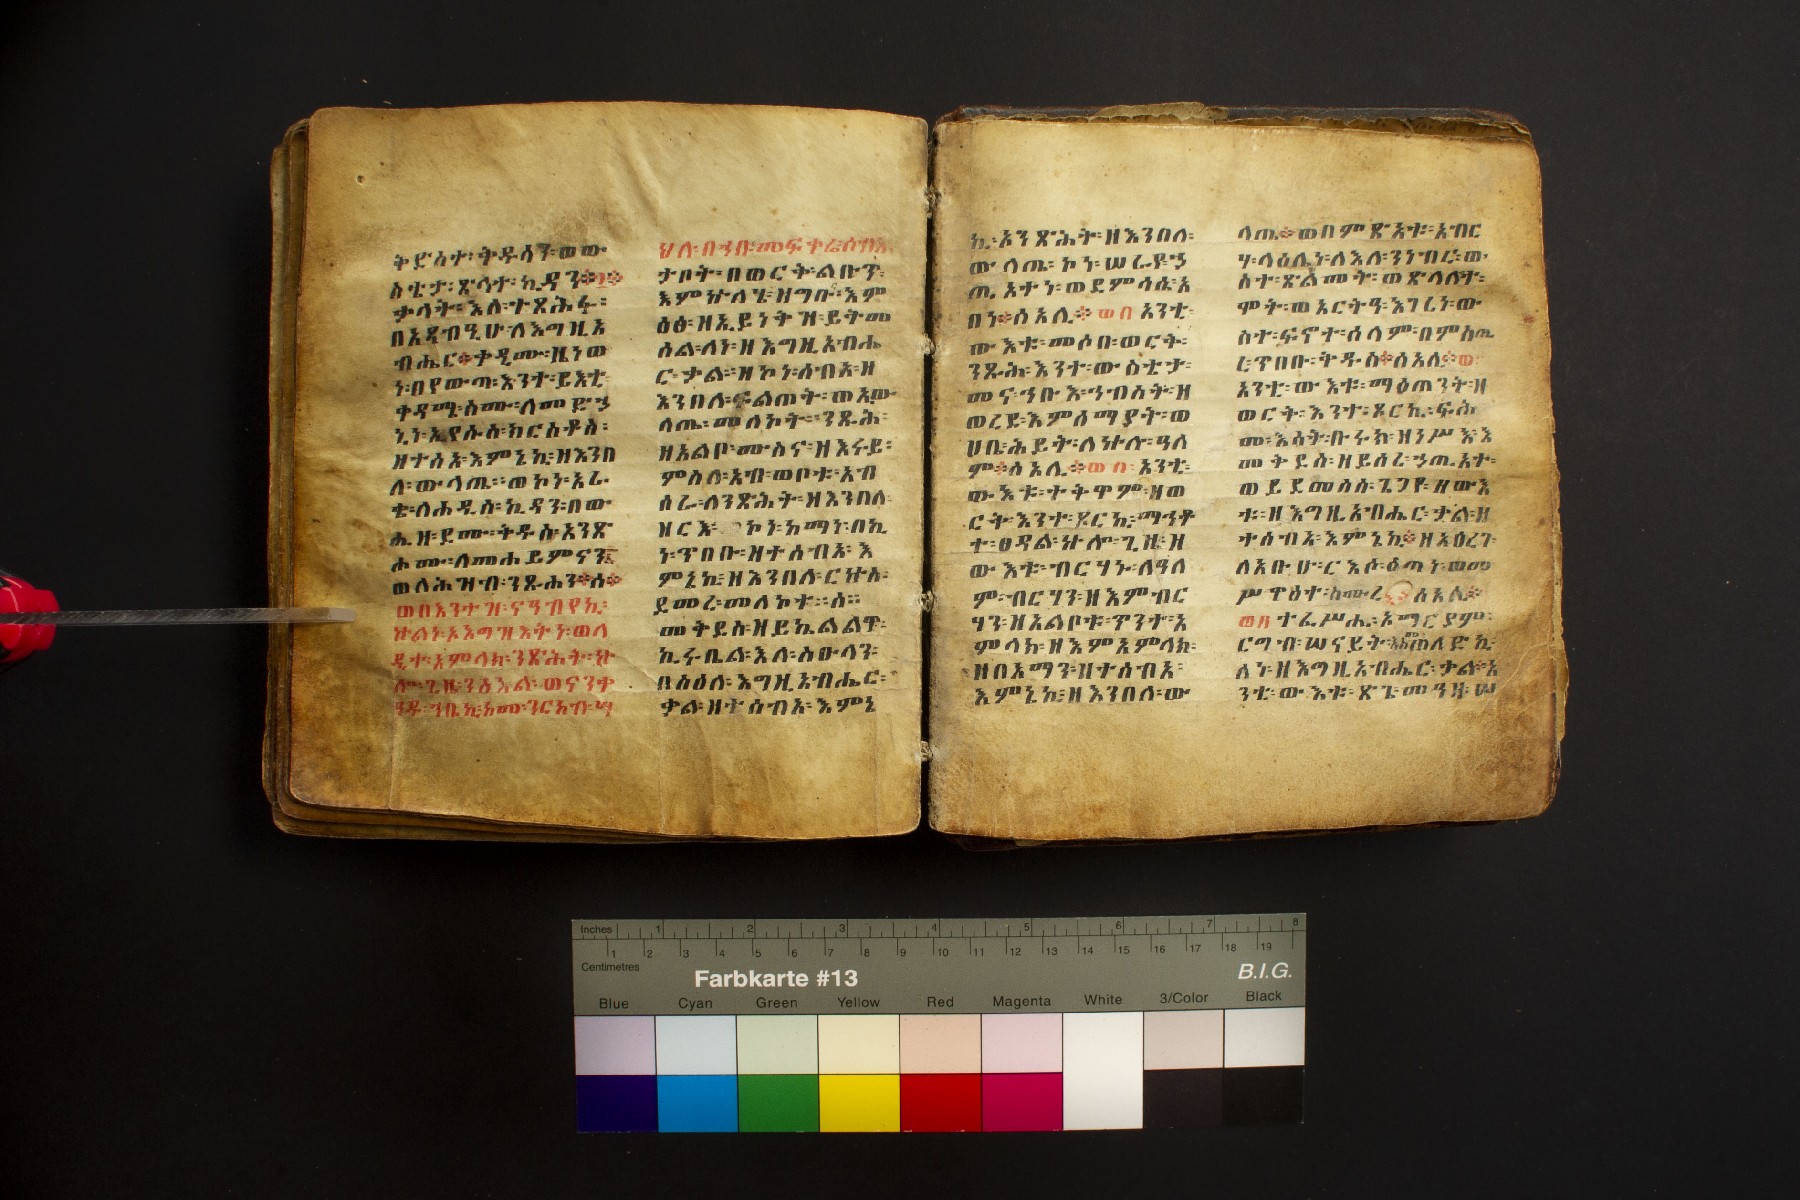 ቅድሳተ፡ ቅዱሳን፡ ወው
ስቴታ፡ ጽላተ፡ ኪዳን
ቃላት፡ እለ፡ ተጽሕፋ፡
በአጻብዒሁ፡ ለእግዚአ
ብሔር፡ ቀዲሙ፡ ዜነወ
ነ፡ በየውጣ፡ እንተ፡ ይእቲ
ቀዳሚ፡ ስሙ፡ ለመድኃ
ኒነ፡ ኢየሱስ፡ ክርስቶስ፡
ዘተሰብአ፡ እምኔኪ፡ ዘእንበ
ለ፡ ውላጤ፡ ወኮነ፡ አራ
ቄ፡ ለሐዲስ፡ ኪዳን፡ በው
ሒዘ፡ ደሙ፡ ቅዱስ፡ አንጽ
ሖሙ፡ ለመሐይምናን
ወለሕዝብ፡ ንጹሐን፡ ሰ
ወበእንተዝ፡ ናዓብየኪ፡
ኵልነ፡ ኦእግዝእትነ፡ ወላ
ዲተ፡ አምላክ፡ ንጽሕት፡ ኵ
ሎ፡ ጊዜ፡ ንስእል፡ ወናንቀ
ዓዱ፡ ኀቤኪ፡ ከመ፡ ንርከብ፡ ሣ
ህለ፡ በኀበ፡ መፍቀሬ፡ ሰብእ
ታቦት፡ በወርቅ፡ ልቡጥ፡
እምኵለሄ፡ ዘግቡር፡ እም
ዕፅ፡ ዘኢይነቅዝ፡ ይትመ
ሰል፡ ለነ፡ ዘእግዚአብሔ
ር፡ ቃል፡ ዘኮነ፡ ሰብአ፡ ዘ
እንበለ፡ ፍልጠት፡ ወኢው
ላጤ፡ መለኮት፡ ንጹሕ፡
ዘአልቦ፡ ሙስና፡ ዘዕሩይ፡
ምስለ፡ አብ፡ ወቦቱ፡ አብ
ሰራ፡ ለንጽሕት፡ ዘእንበለ፡
ዘርእ፡ ኮነ፡ ከማነ፡ በኪ
ነ፡ ጥበቡ፡ ዘተሰብአ፡ እ
ምኔኪ፡ ዘእንበለ፡ ርኵስ፡
ደመረ፡ መለኮቶ፡ ሰ፡
መቅደስ፡ ዘይኬልልዋ፡
ኪሩቤል፡ እለ፡ ስዑላን፡
በስዕለ፡ እግዚአብሔር፡
ቃል፡ ዘተሰብአ፡ እምኔ
ኪ፡ ኦንጽሕት፡ ዘእንበለ፡
ውላጤ፡ ኮነ፡ ሠራዬ፡ ኃ
ጢአተነ፡ ወደምሳሴ፡ አ
በሳነ፡ ሰአሊ፡ ወበ አንቲ፡
ውእቱ፡ መሶበ፡ ወርቅ፡
ንጹሕ፡ እንተ፡ ውስቴታ፡
መና፡ ኅቡእ፡ ኅብስት፡ ዘ
ወረደ፡ እምሰማያት፡ ወ
ሀቤ፡ ሕይወት፡ ለኵሉ፡ ዓለ
ም፡ ሰአሊ፡ ወበ አንቲ፡
ውእቱ፡ ተቅዋም፡ ዘወ
ርቅ፡ እንተ፡ ጾርኪ፡ ማኅቶ
ተ፡ ፀዳል፡ ኵሎ፡ ጊዜ፡ ዘ
ውእቱ፡ ብርሃኑ፡ ለዓለ
ም፡ ብርሃን፡ ዘእምብር
ሃን፡ ዘአልቦቱ፡ ጥንት፡ አ
ምላክ፡ ዘእምአምላክ፡
ዘበአማን፡ ዘተሰብአ፡
እምኔኪ፡ ዘእንበለ፡ ው
ላጤ፡ ወበምጽአቱ፡ አብር
ሃ፡ ላዕሌነ፡ ለእለ፡ ንነብር፡ ው
ስተ፡ ጽልመት፡ ወጽላሎተ፡
ሞት፡ ወአርትዓ፡ እገሪነ፡ ው
ስተ፡ ፍኖተ፡ ሰላም፡ በምስጢ
ረ፡ ጥበቡ፡ ቅዱስ፡ ሰአሊ፡ ወ
አንቲ፡ ውእቱ፡ ማዕጠንት፡ ዘ
ወርቅ፡ እንተ፡ ጾርኪ፡ ፍሕ
መ፡ እሳት፡ ቡሩክ፡ ዘነሥአ፡ እ
መቅደስ፡ ዘይሰሪ፡ ኃጢአተ፡
ወይደመስስ፡ ጌጋየ፡ ዘውእ
ቱ፡ ዘእግዚአብሔር፡ ቃል፡ ዘ
ተሰብአ፡ እምኔኪ፡ ዘአዕረገ፡
ለአቡሁ፡ ርእሶ፡ ዕጣነ፡ ወመ
ሥዋዕተ፡ ስሙረ፡ ሰአሊ፡
ወበ ተፈሥሒ፡ ኦማርያም፡
ርግብ፡ ሠናይት፡ እንተ፡ ወለድኪ፡
ለነ፡ ዘእግዚአብሔር፡ ቃል፡ አ
ንቲ፡ ውእቱ፡ ጽጌ፡ መዓዛ፡ ሠ
Inches 1 2 3 4 5 6 7 8
1 2 3 4 5 6 7 8 9 10 11 12 13 14 15 16 17 18 19
Centimetres
Farbkarte #13
B.I.G.
Blue Cyan Green Yellow Red Magenta White 3/Color Black